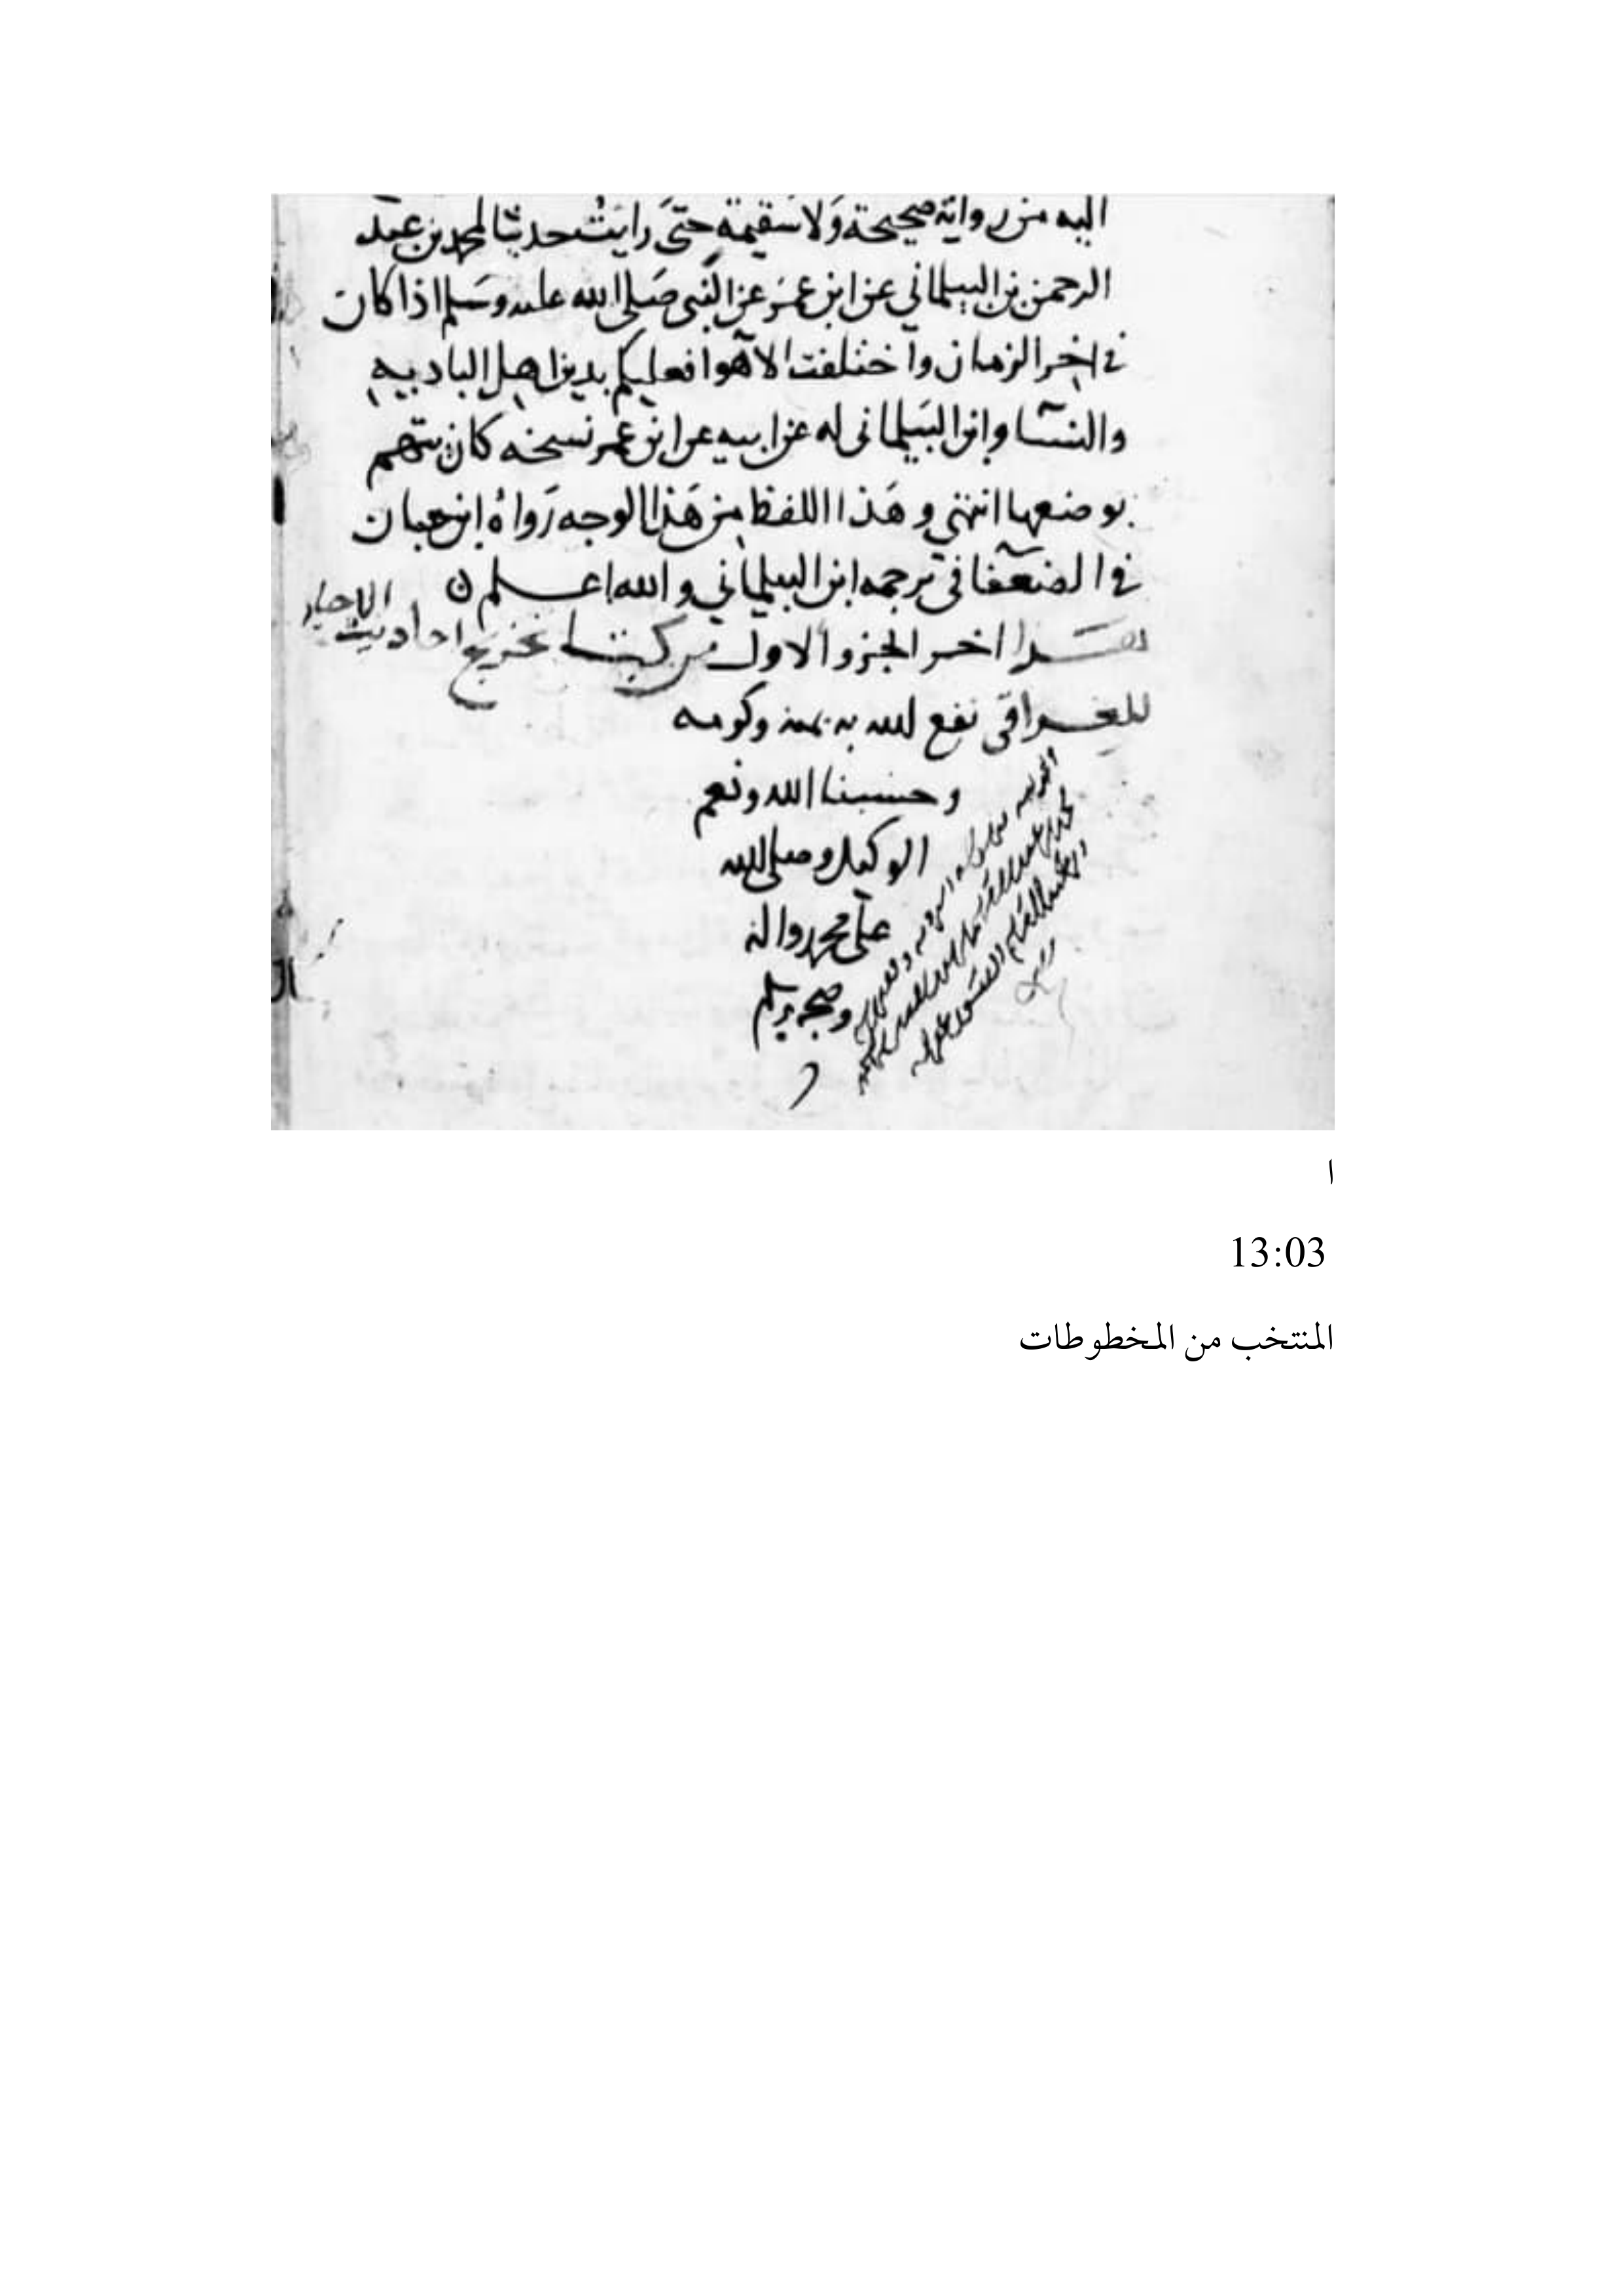 اليه من رواية صحيحة ولا سقيمة حتى رايت حديثا لمحمد بن عبد
الرحمن بن البيلماني عن ابن عمر عن النبي صلى الله عليه وسلم اذا كان
في اخر الزمان واختلفت الاهوا فعليكم بدين اهل الباديه
والنسا وابن البيلماني له عن ابيه عن ابن عمر نسخه كان يتهم
بوضعها انتهي وهذا اللفظ من هذا الوجه رواه ابن حبان
في الضعفا في ترجمه ابن البيلماني والله اعلم ن
هذا اخر الجزو الاول من كتاب تخريج احاديث الاحيا
للعراقي نفع الله به بمنه وكرمه
وحسبنا الله ونعم
الوكيل وصلى الله
على محمد واله
وصحبه وسلم
الحمد لله
ا
13:03
المنتخب من المخطوطات